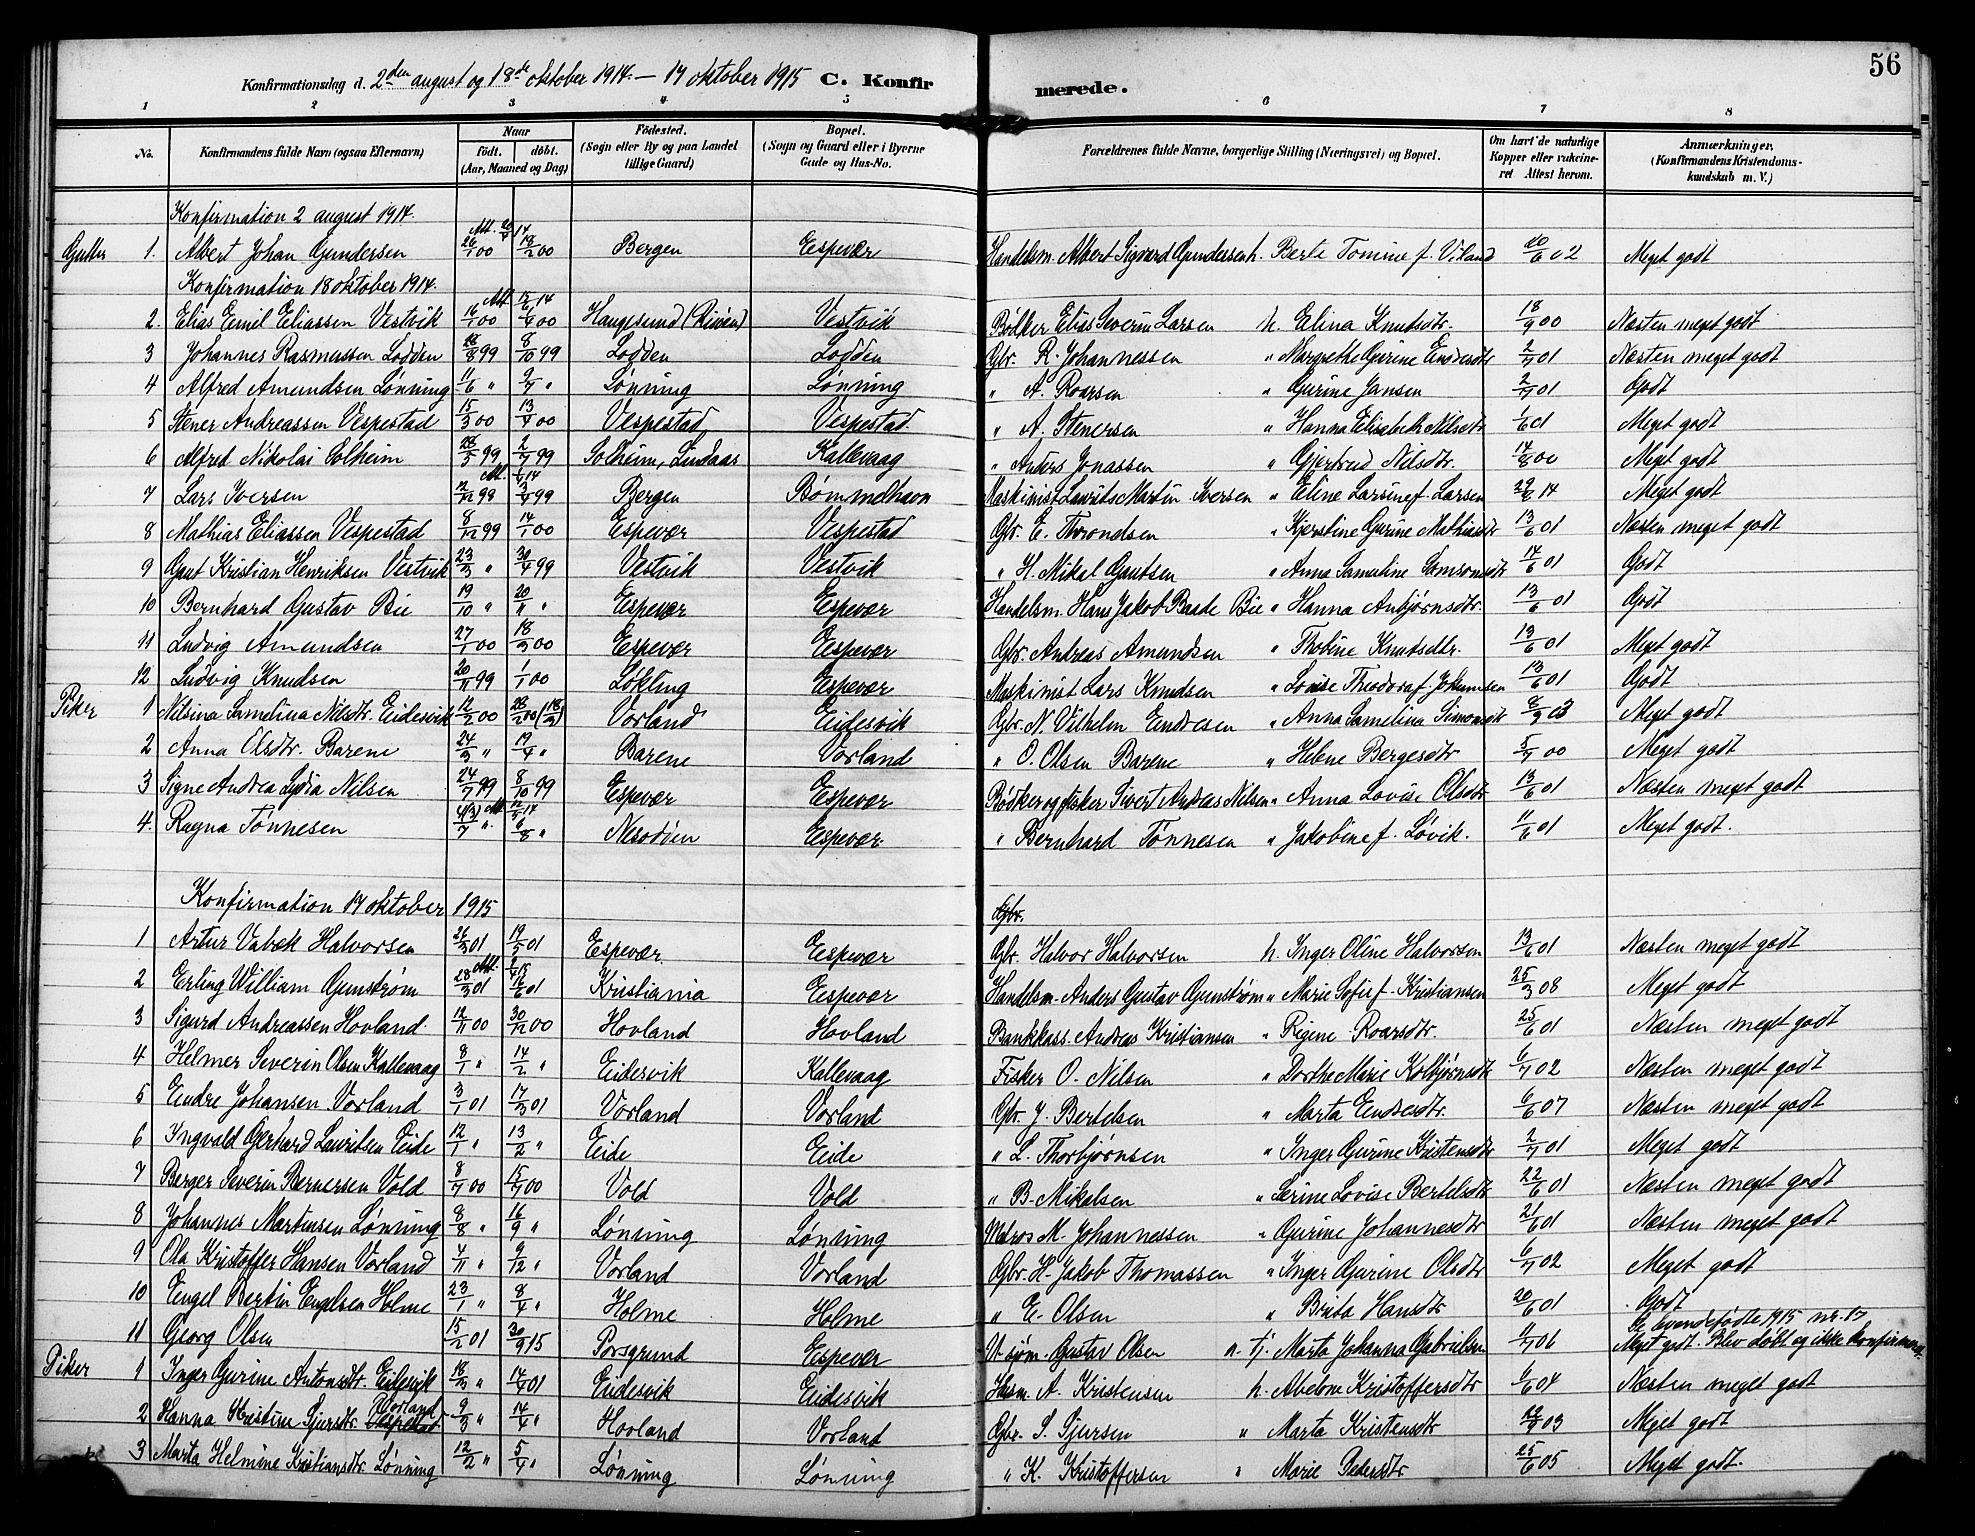 56
Konfirmationsdag d. 2den august og 18de oktober 1914 — 17 oktober 1915 C. Konfirmerede.
1 2 3 4 5 6 7 8
No. Konfirmandens fulde Navn (ogsaa Efternavn) Naar født. døbt. (Aar, Maaned og Dag) Födested. (Sogn eller By og paa Landet tillige Gaard) Bopæl. (Sogn og Gaard eller i Byerne Gade og Hus-No. Forældrenes fulde Navne, borgerlige Stilling (Næringsvei) og Bopæl. Om havt de naturlige Kopper eller vakcineret Attest herom. Anmærkninger. (Konfirmandens Kristendomskundskab m. V.)
Konfirmation 2 august 1914.
Gutter 1. Albert Johan Gundersen 26/1 00 18/2 00 Bergen Espevær Handelsm. Albert Sigvard Gundersen h. Berta Tomine f. Viland 20/6 02 Meget godt
Konfirmation 18 oktober 1914.
2. Elias Emil Eliassen Vestvik 16/1 00 1/6 00 Haugesund (Risöen) Vestvik Bødker Elias Severin Larsen h. Elina Knutsdtr. 18/9 00 Næsten meget godt
3 Johannes Rasmussen Lodden 28/8 99 8/10 99 Lodden Lodden Gbr. R. Johannessen " Margrethe Gurine Endresdtr 2/7 01 Næsten meget godt
4 Alfred Amundsen Lønning 11/6 " 9/7 " Lønning Lønning " A. Roarsen " Gurine Jansen 2/7 01 Godt
5 Stener Andreassen Vespestad 15/3 00 13/4 00 Vespestad Vespestad " A. Stenersen " Hanna Elisabeth Nilsdtr 1/6 01 Meget godt
6 Alfred Nikolai Solheim 28/5 99 2/7 99 Solheim, Lindaas Kallevaag " Anders Jonassen " Gjertrud Nilsdtr. 14/8 00 Meget godt
7 Lars Iversen 99 3/4 99 Bergen Bømmelhavn Maskinist Laurits Martin Iversen " Eline Larsine f. Larsen 29/6 14 Meget godt
8 Mathias Eliassen Vespestad 8/12 99 14/1 00 Espevær Vespestad Gbr. E. Throndsen " Kjerstine Gurine Mathiasdtr 13/6 01 Næsten meget godt
9 Gaut Kristian Henriksen Vestvik 23/3 " 30/4 99 Vestvik Vestvik " H. Mikal Gautsen " Anna Samuline Samsonsdtr 14/6 01 Godt
10 Bernhard Gustav Bie 19/10 " 20/11 " Espevær Espevær Handelsm. Hans Jakob Baade Bie " Hanna Anbjørnsdtr. 13/6 01 Godt
11 Ludvig Amundsen 27/1 00 18/3 00 Espevær Espevær Gbr. Andreas Amundsen " Thobine Knutsdtr. 13/6 01 Meget godt
12 Ludvig Knudsen 20/11 99 1/1 00 Løkling Espevær Maskinist Lars Knudsen " Lovise Theodora f. Jokumsen 13/6 01 Godt
Piker 1 Nilsina Samelina Nilsdtr. Eidesvik 12/2 00 28/2 00 (18/3) Vorland Eidesvik Gbr. N. Vilhelm Endresen " Anna Samelina Simonsdtr 8/9 13 Meget godt
2 Anna Olsdtr. Barene 24/3 " 19/4 " Barene Vorland " O. Olsen Barene " Helene Bergesdtr 5/9 00 Meget godt
3 Signe Andrea Lydia Nilsen 24/7 99 8/10 99 Espevær Espevær Bødker og fisker Sivert Andreas Nilsen " Anna Lovise Olsdtr 13/6 01 Næsten meget godt
4. Ragna Tønnesen 6/8 " Nesodden Espevær " Bernhard Tønnesen " Jakobine f. Løvik. 11/6 01 Meget godt.
Konfirmation 17 oktober 1915
Gbr.
1 Artur Vabøk Halvorsen 26/3 01 19/5 01 Espevær Espevær Gbr. Halvor Halvorsen h. Inger Oline Halvorsen 13/6 01 Næsten meget godt
2 Erling William Gunstrøm 28/3 01 16/6 01 Kristiania Espevær Handelsm. Anders Gustav Gunstrøm " Marie Sofie f. Kristiansen 25/3 08 Meget godt
3 Sigurd Andreassen Hovland. 12/11 00 30/12 00 Hovland Hovland Bankkass. Andreas Kristiansen " Regine Roarsdtr. 25/6 01 Næsten meget godt
4 Helmer Severin Olsen Kallevaag 8/1 " 14/2 " Eidesvik Kallevaag Fisker O. Nilsen " Dorthe Marie Kolbjørnsdtr 6/7 02 Næsten meget godt
5 Endre Johansen Vorland 3/1 01 17/3 01 Vorland Vorland Gbr. J. Bertelsen " Marta Endresdtr. 6/6 07 Næsten meget godt
6 Ingvald Gerhard Lauritsen Eide 12/1 " 13/2 " Eide Eide " L. Thorbjørnsen " Inger Gurine Kristensdtr 2/7 01 Meget godt
7 Berger Severin Bernersen Vold 8/7 00 15/7 00 Vold Vold " B. Mikelsen " Serine Lovise Bertelsdtr 22/6 01 Næsten meget godt
8 Johannes Martinsen Lønning 8/8 " 16/9 " Lønning Lønning Matros M. Johannessen " Gurine Johannesdtr 21/6 01 Næsten meget godt
9 Ola Kristoffer Hansen Vorland 4/11 " 9/12 " Vorland Vorland Gbr. H. Jakob Thomassen " Inger Gurine Olsdtr 6/7 02 Meget godt
10 Engel Bertin Engelsen Holme 23/1 " 8/4 " Holme Holme " E. Olsen " Brita Hansdtr 20/6 01 Godt
11 Georg Olsen 15/2 01 30/9 15 Porsgrund Espevær Gustav Olsen Marta Johanna Gabrielsen 06 Se levendefødte 1915 nr. 17 Meget godt. Blev døbt og ikke konfirmeret.
Piker 1 Inger Gurine Antonsdtr. Eidesvik 18/3 " 14/4 01 Eidesvik Eidesvik Husm. A. Kristensen h. Abelone Kristoffersdtr 6/6 04 Næsten meget godt
2 Hanna Kristine Sjursdtr. Vespestad Vorland 9/3 " 14/4 " Hovland Vorland Gbr. S. Sjursen " Marta Kristensdtr 03 Meget godt
3 Marta Helmine Kristiansdtr. Lønning 12/2 " 5/4 " Lønning Lønning " K. Kristoffersen " Marie Pedersdtr 25/6 05 Meget godt.